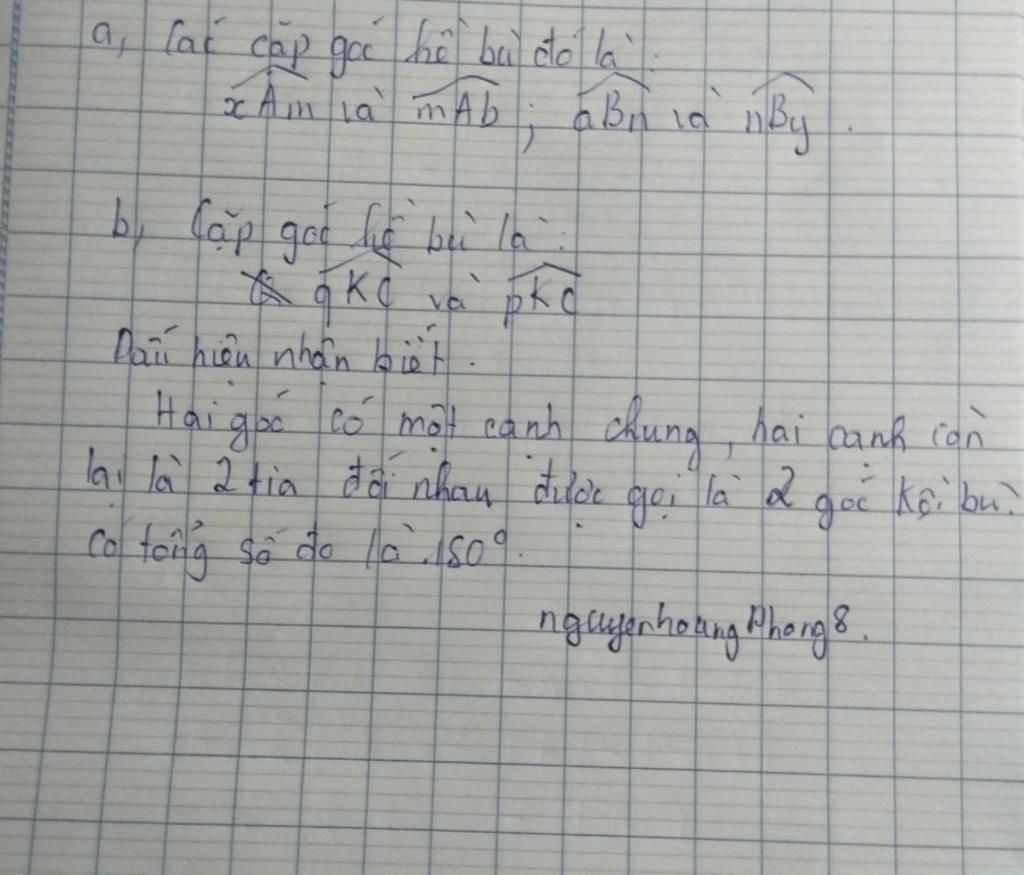 a, Các cặp góc kề bù đó là:
xAm và mAb ; aBn và nBy .
b, Cặp góc kề bù là :
qKC và pKC
Dấu hiệu nhận biết .
Hai góc có một cạnh chung, hai cạnh còn
lại là 2 tia đối nhau được gọi là 2 góc kề bù.
có tổng số đo là 180°.
nguyenhoangPhong8.